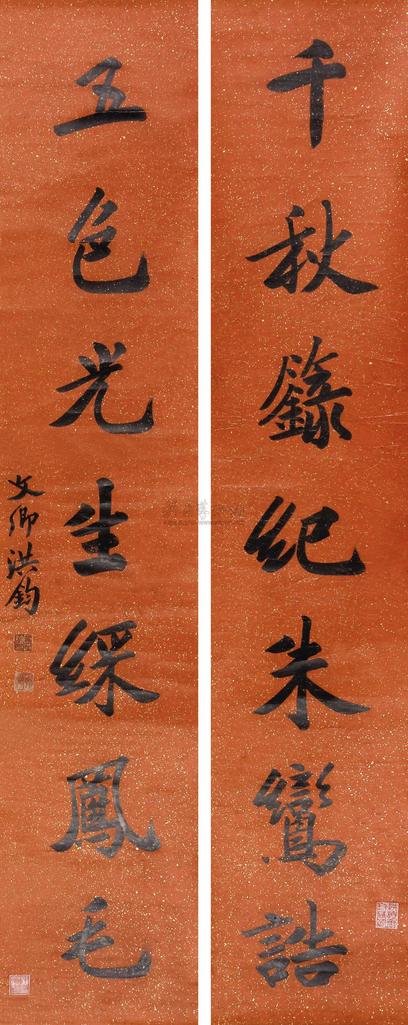 千秋籙紀朱鸞誥
五色光生綵鳳毛
文卿洪鈞